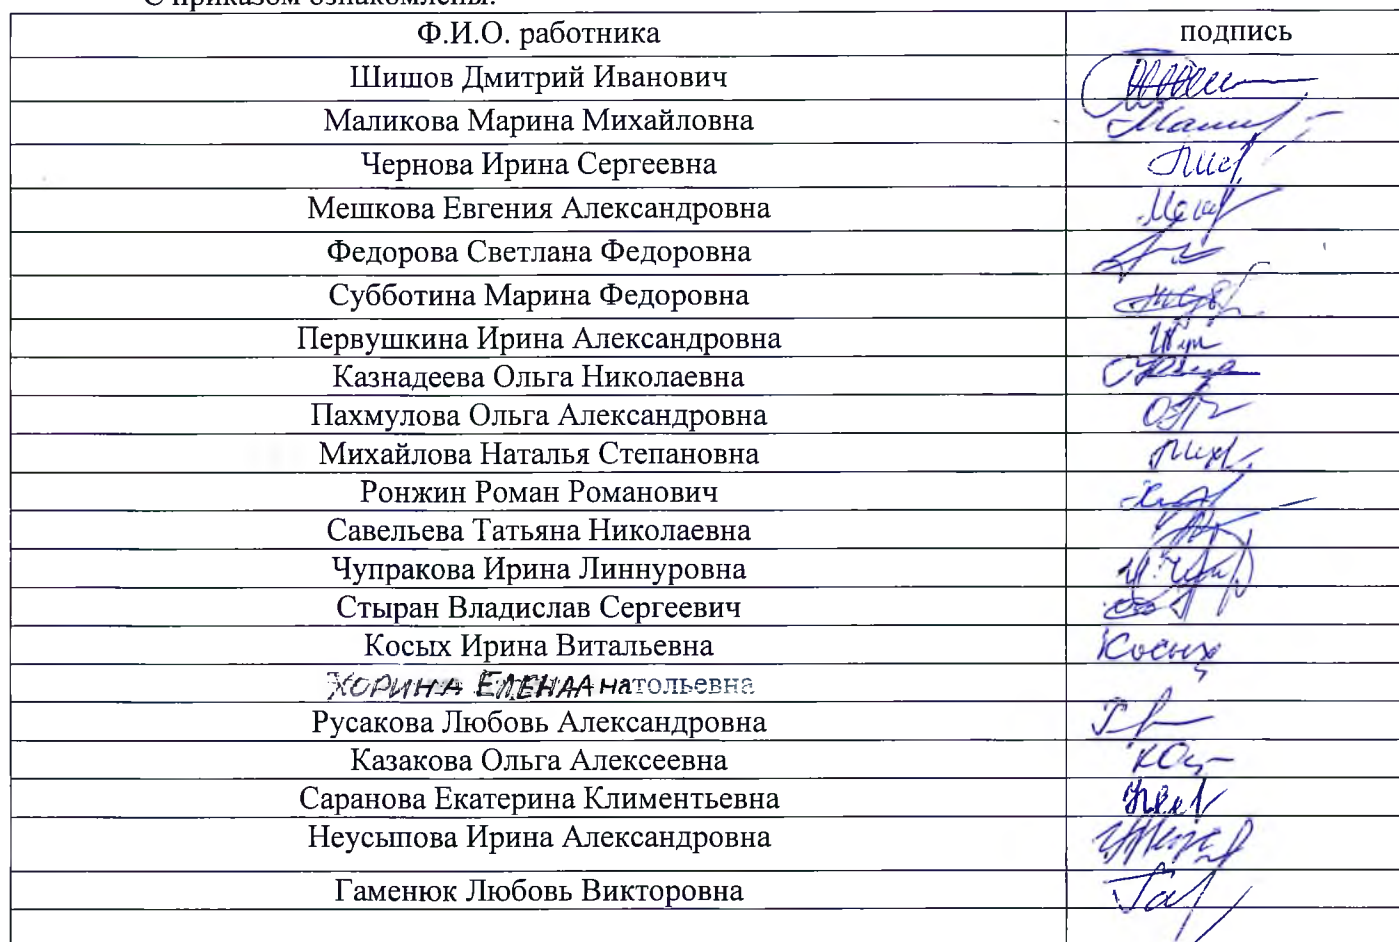 С приказом ознакомлены:
Ф.И.О. работника подпись
Шишов Дмитрий Иванович
Маликова Марина Михайловна
Чернова Ирина Сергеевна
Мешкова Евгения Александровна
Федорова Светлана Федоровна
Субботина Марина Федоровна
Первушкина Ирина Александровна
Казнадеева Ольга Николаевна
Пахмулова Ольга Александровна
Михайлова Наталья Степановна
Ронжин Роман Романович
Савельева Татьяна Николаевна
Чупракова Ирина Линнуровна
Стыран Владислав Сергеевич
Косых Ирина Витальевна Косых
ХОРИНА ЕЛЕНА Анатольевна
Русакова Любовь Александровна
Казакова Ольга Алексеевна
Саранова Екатерина Климентьевна
Неусыпова Ирина Александровна
Гаменюк Любовь Викторовна